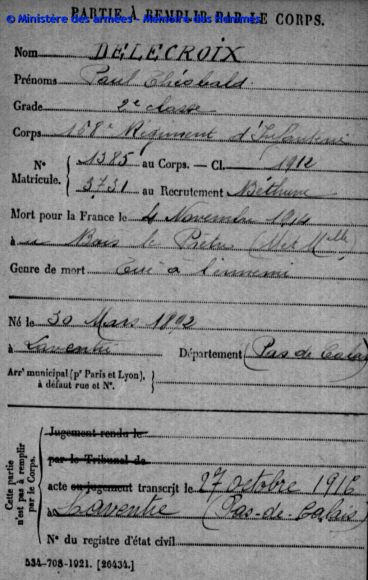 © Ministère des armées - Mémoire des Hommes
PARTIE À REMPLIR PAR LE CORPS.
Nom DELECROIX
Prénoms Paul Théobald
Grade 2e classe
Corps 158e Régiment d'Infanterie
N° Matricule. { 1385 au Corps. — Cl. 1912
3731 au Recrutement Béthune
Mort pour la France le 4 Novembre 1914
à au Bois le Prêtre (Mthe Mlle)
Genre de mort Tué à l'ennemi
Né le 30 Mars 1892
à Laventie Département (Pas de Calais)
Arrt municipal (pr Paris et Lyon),
à défaut rue et N°.
Cette partie n'est pas à remplir par le Corps.
Jugement rendu le
par le Tribunal de
acte ou jugement transcrit le 27 octobre 1916
à Laventie (Pas-de-Calais)
N° du registre d'état civil
534-708-1921. [26434.]